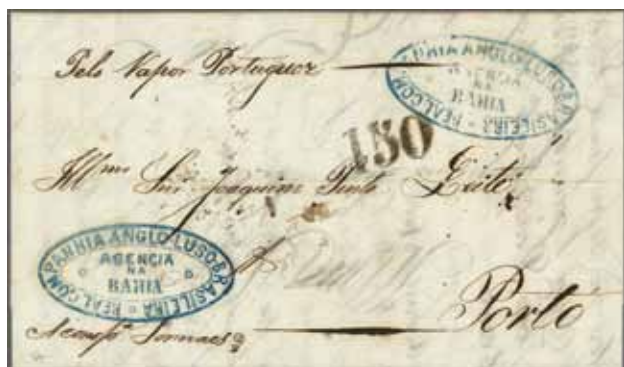 Pelo Vapor Portuguez
REAL COMPANHIA ANGLO LUSO BRASILEIRA
AGENCIA
NA
BAHIA
150
Illmo Snr Joaquim Pinto Leite
REAL COMPANHIA ANGLO LUSO BRASILEIRA
AGENCIA
NA
BAHIA
Porto